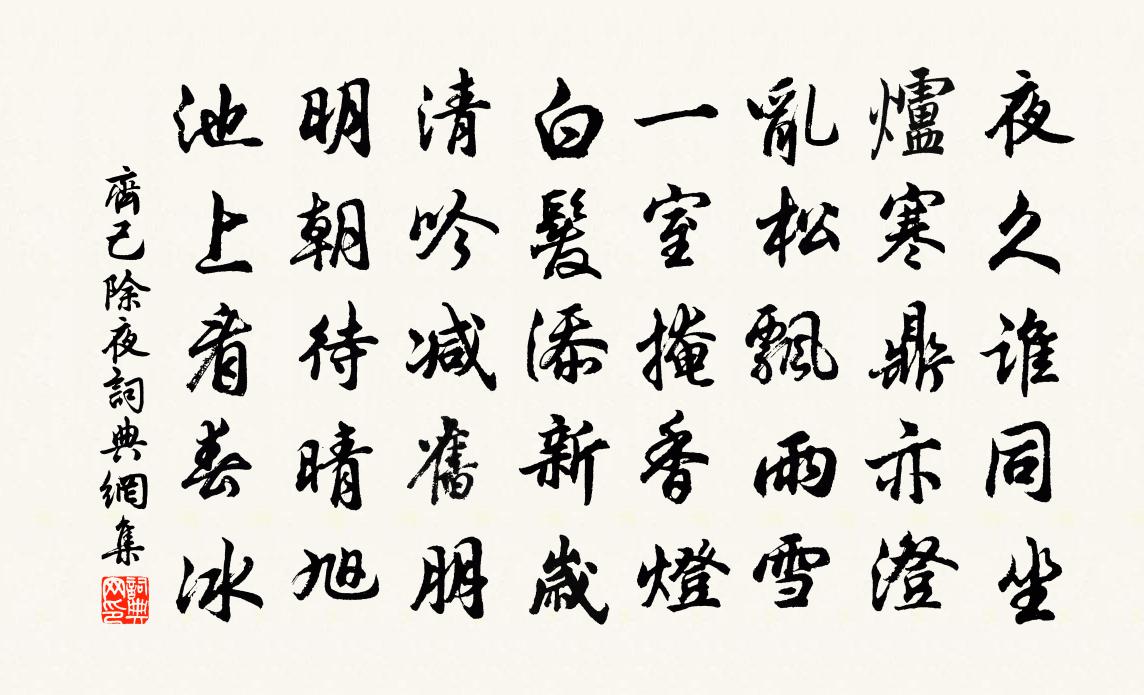 夜久誰同坐
爐寒鼎亦澄
亂松飄雨雪
一室掩香燈
白髮添新歲
清吟減舊朋
明朝待晴旭
池上看春冰
齊己除夜詞典網集
詞典網印